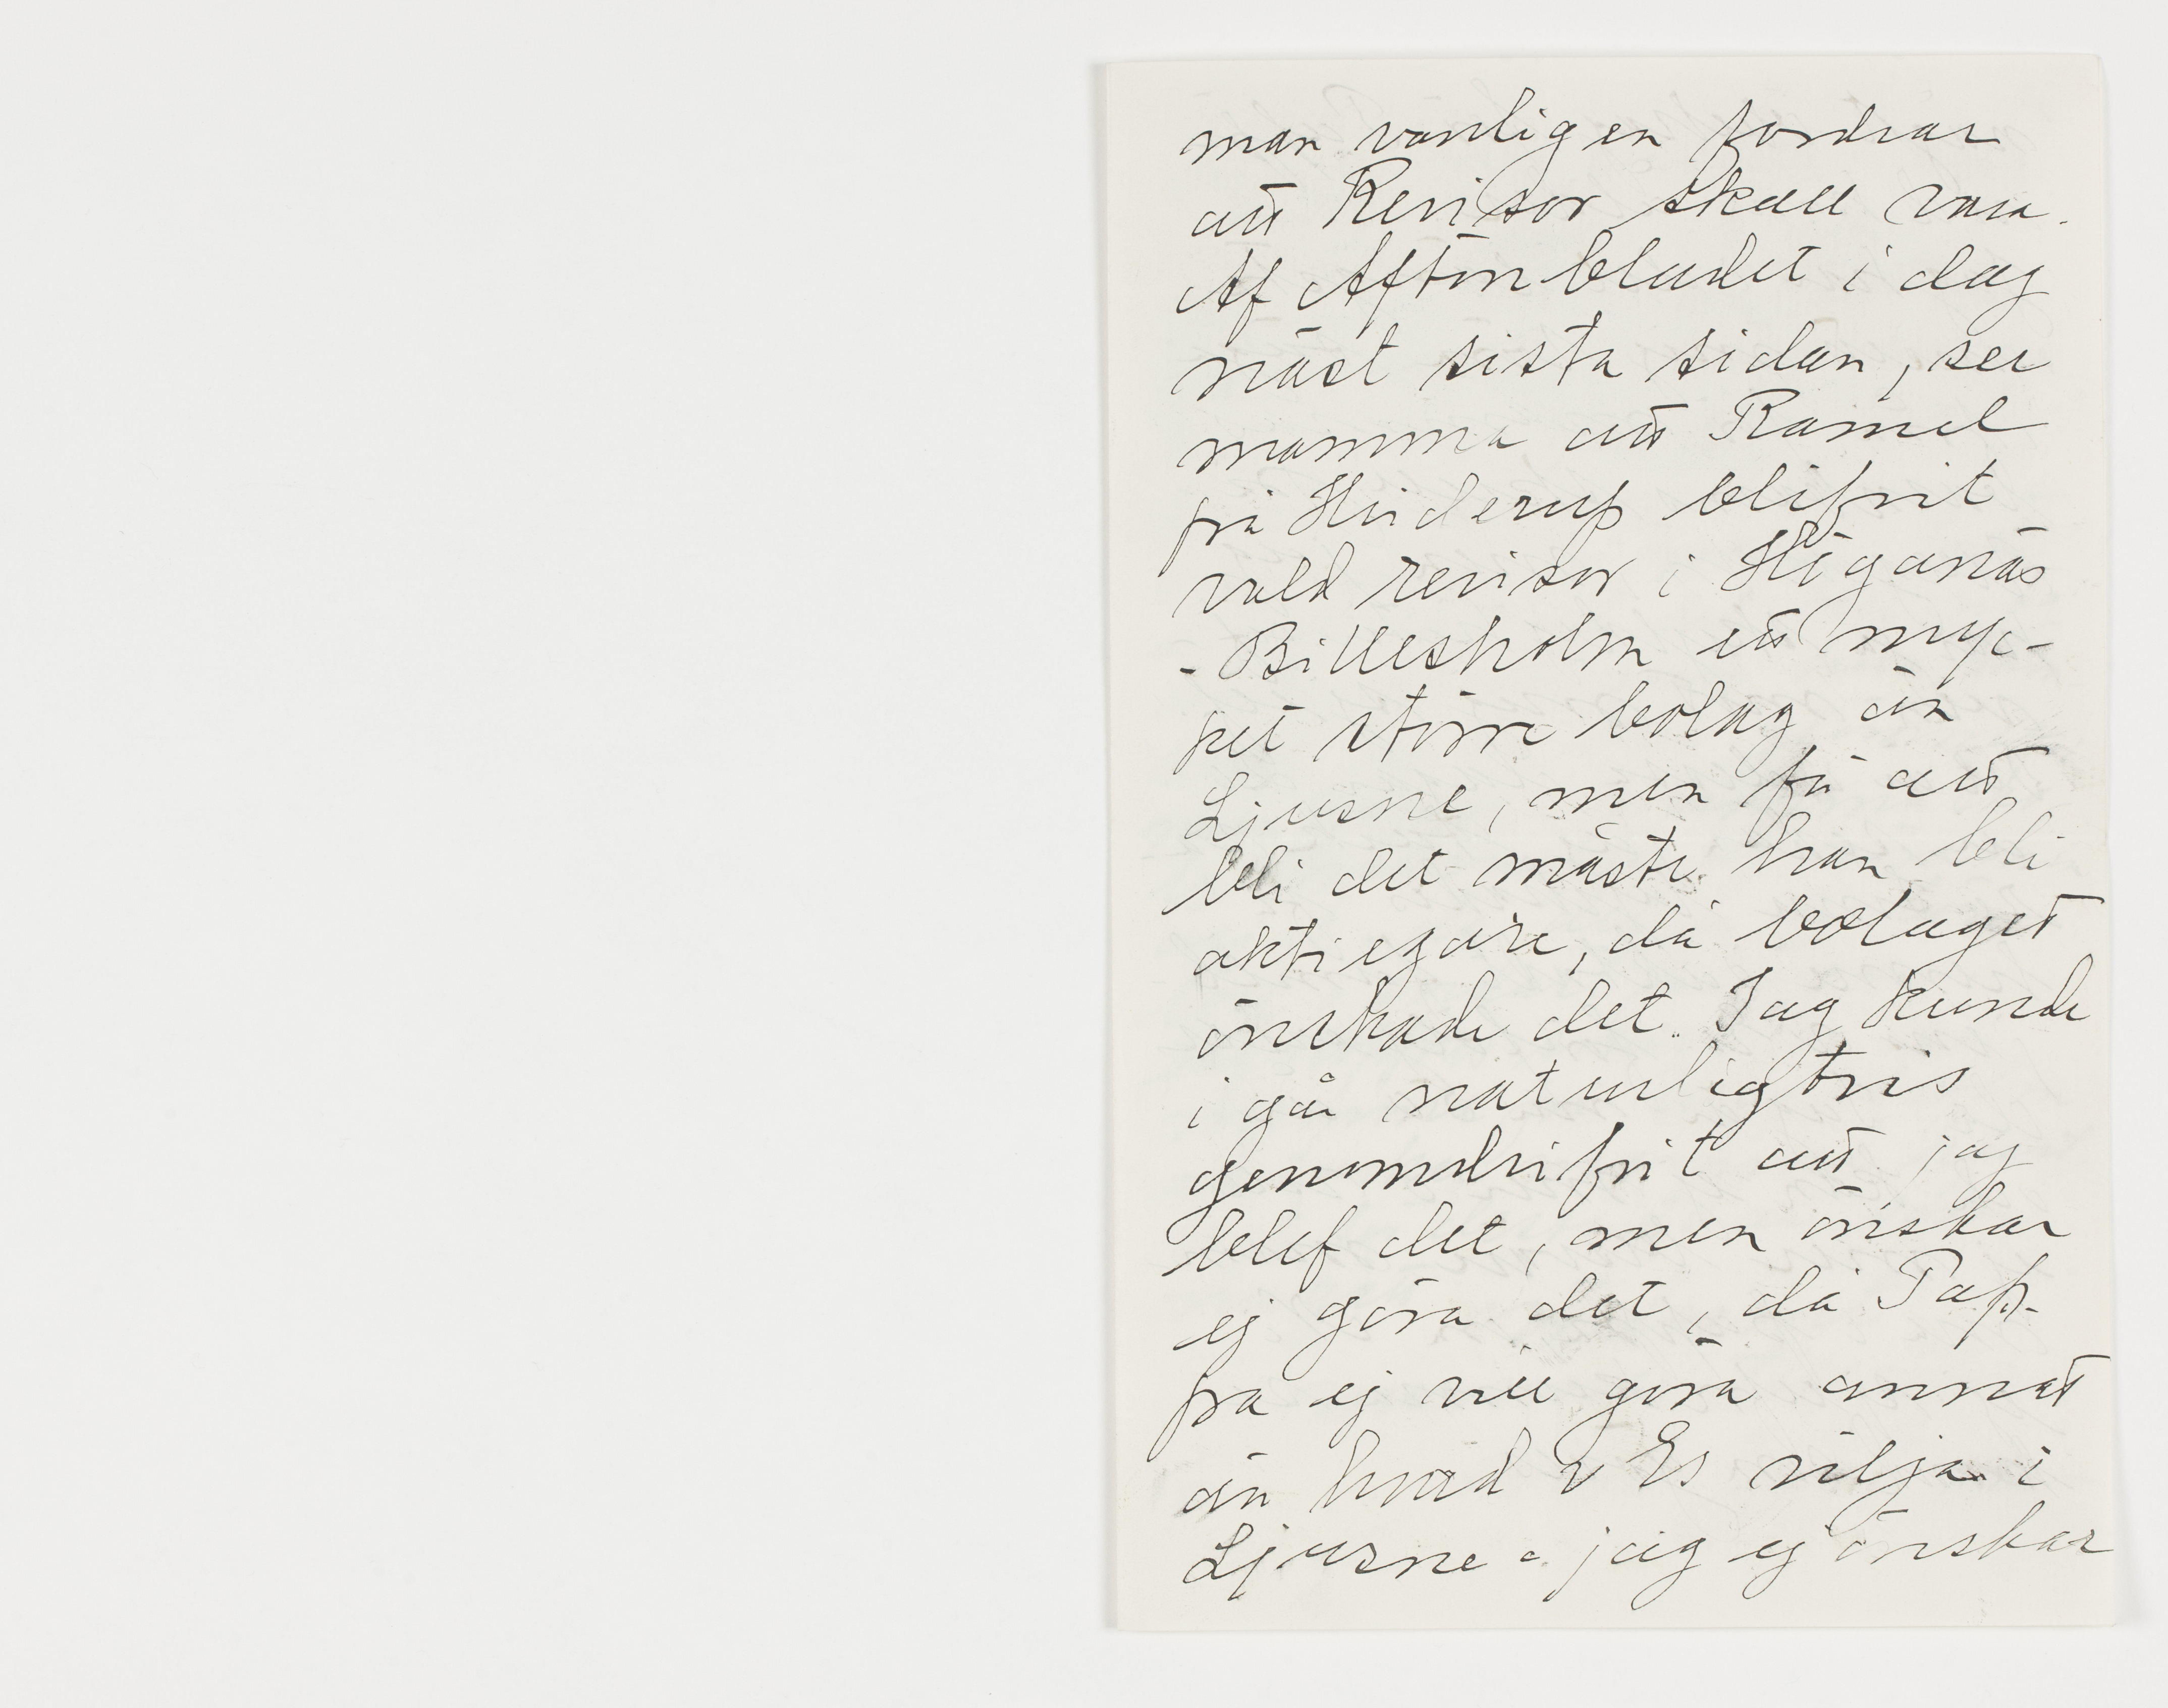 man vanligen fordrar
att Revisor skall vara.
Af Aftonbladet i dag
näst sista sidan, ser
mamma att Ramel
på Hviderup blifvit
vald revisor i Höganäs
- Billesholm ett myc-
ket större bolag än
Ljusne, men få att
bli det måste han bli
aktiegare, då bolaget
önskade det. Jag kunde
i går naturligtvis
genomdrifvit att jag
blef det, men önskar
ej göra det, då Pap-
pa ej vill göra annat
än hvad v Es vilja i
Ljusne a jag ej önskar